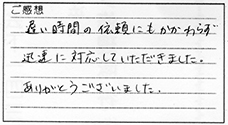 ご感想
遅い時間の依頼にもかかわらず
迅速に対応していただきました。
ありがとうございました。